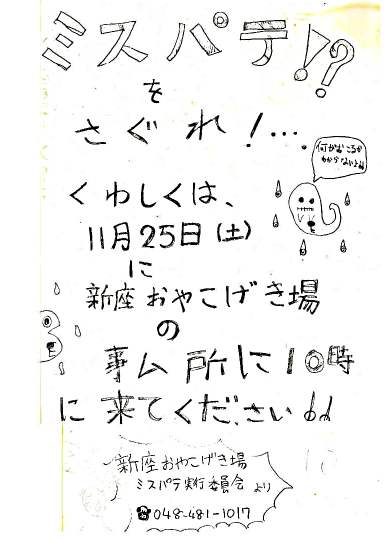 ミスパテ!?
を
さぐれ!…
何がおころか
わからないよ
くわしくは、
11月25日(土)
に
新座おやこげき場
の
事ム所に10時
に来てください
新座おやこげき場
ミスパテ実行委員会より
☎048-481-1017